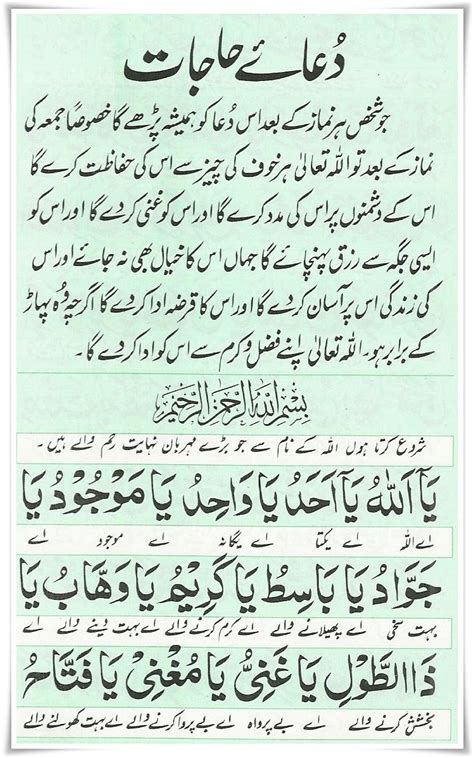 دُعائے حاجات
جو شخص ہر نماز کے بعد اس دُعا کو ہمیشہ پڑھے گا خصوصًا جمعہ کی
نماز کے بعد تو اللہ تعالیٰ ہر خوف کی چیز سے اس کی حفاظت کرے گا
اس کے دشمنوں پر اس کی مدد کرے گا اور اس کو غنی کر دے گا اور اس کو
ایسی جگہ سے رزق پہنچائے گا جہاں اس کا خیال بھی نہ جائے اور اس
کی زندگی اس پر آسان کر دے گا اور اس کا قرضہ ادا کر دے گا اگرچہ وُہ پہاڑ
کے برابر ہو۔ اللہ تعالیٰ اپنے فضل و کرم سے اس کو ادا کر دے گا۔
بِسْمِ اللهِ الرَّحْمٰنِ الرَّحِيْمِ
شروع کرتا ہوں اللہ کے نام سے جو بڑے مہربان نہایت رحم والے ہیں۔
يَآ اَللّٰهُ يَآ اَحَدُ يَا وَاحِدُ يَا مَوْجُوْدُ يَا
اے اللہ اے یکتا اے یگانہ اے موجود اے
جَوَّادُ يَا بَاسِطُ يَا كَرِيْمُ يَا وَهَّابُ يَا
بہت سخی اے پھیلانے والے اے کرم کرنے والے اے بہت دینے والے اے
ذَا الطَّوْلِ يَا غَنِيُّ يَا مُغْنِيْ يَا فَتَّاحُ
بخشش کرنے والے اے بے پرواہ اے بے پروا کرنے والے اے بہت کھولنے والے